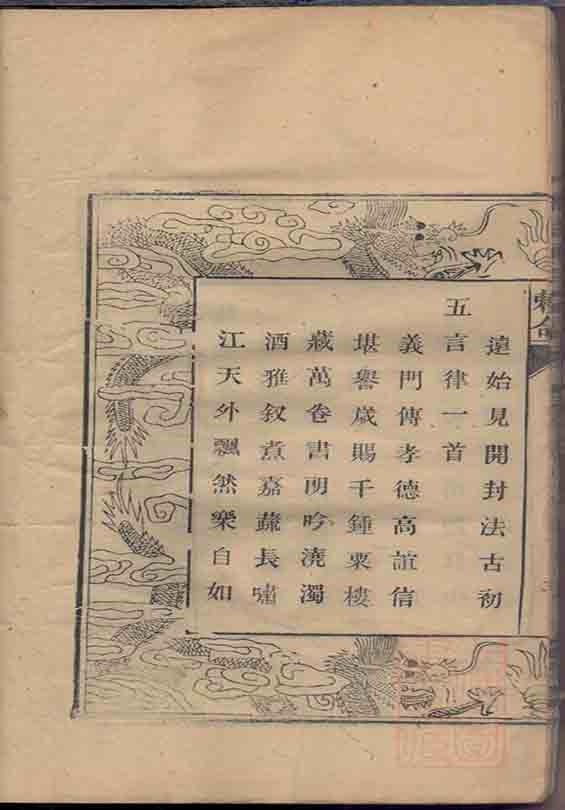 遠始見開封法古初
五言律一首
義門傳孝德高誼信
堪譽歳賜千鍾粟樓
藏萬卷書閒吟澆濁
酒雅叙煮嘉蔬長嘯
江天外飄然樂自如